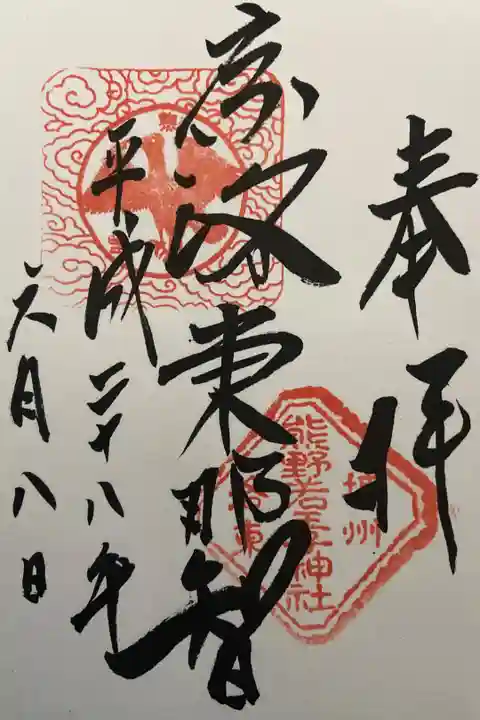 奉拝
京洛東那智
平成二十八年
六月八日
城州
熊野若王子神社
洛東